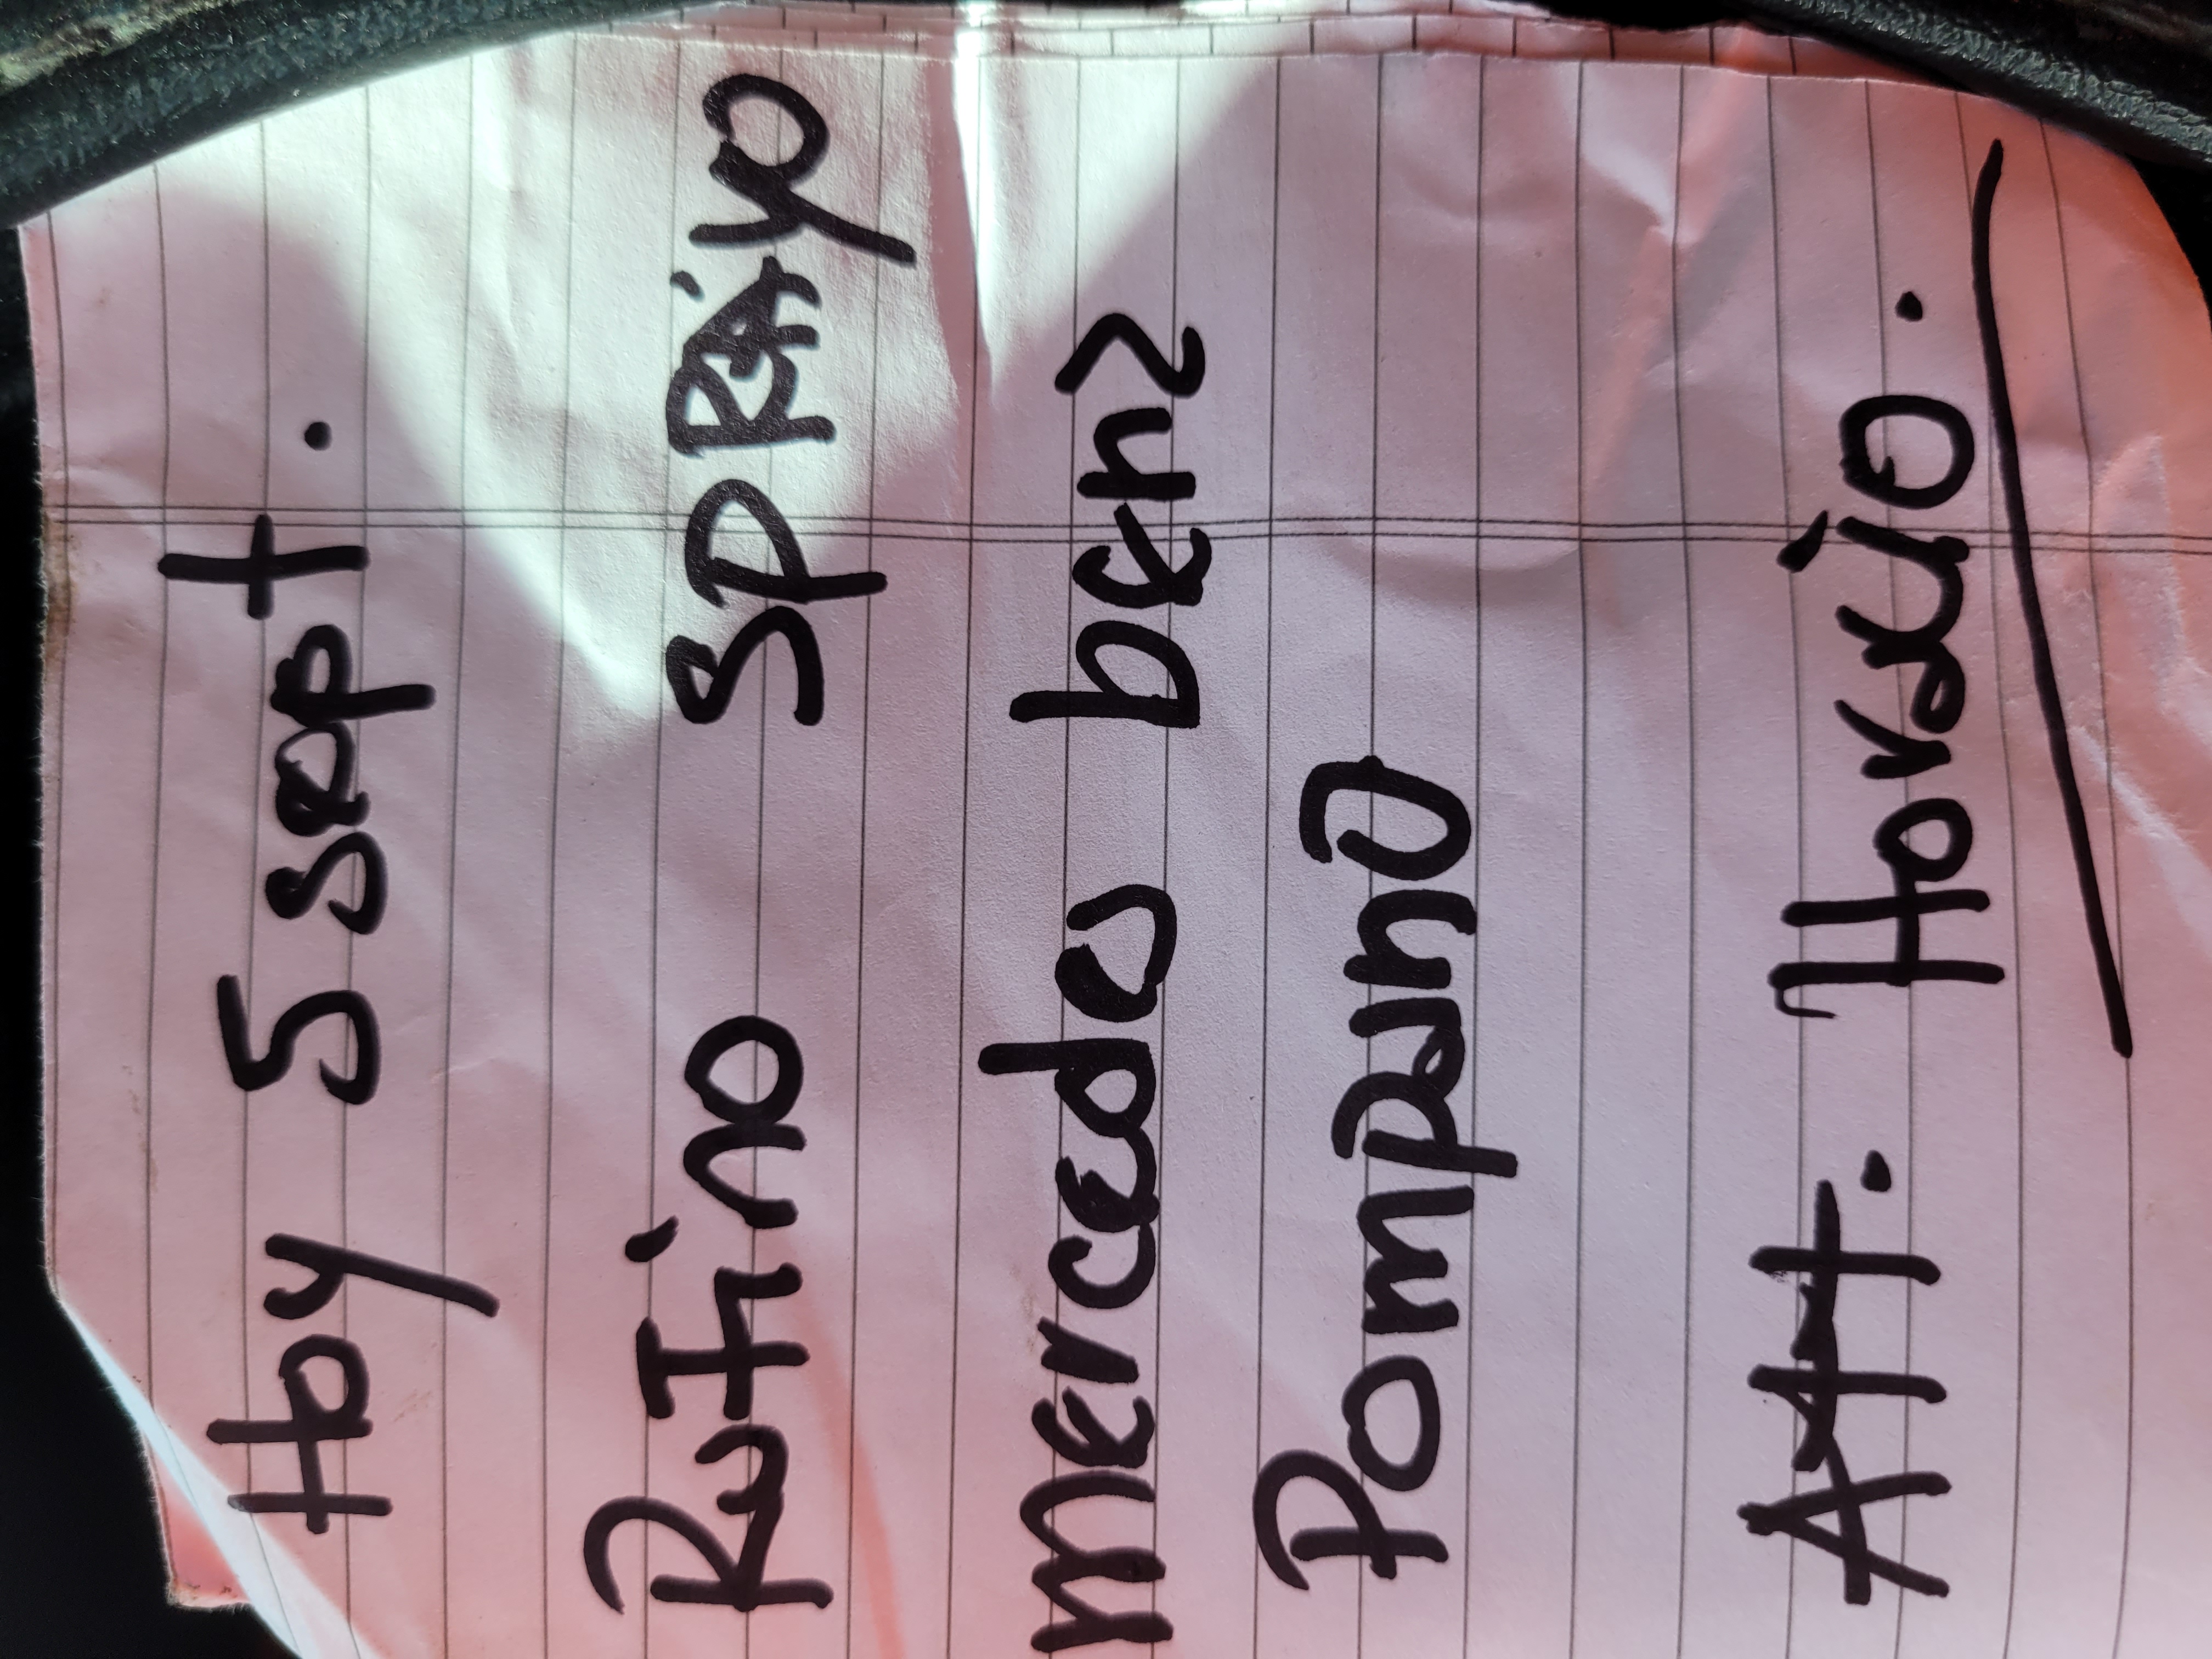 Hoy 5 sept.
Rufino SPRAYO
mercedes benz
Pompano
Att. Horacio.